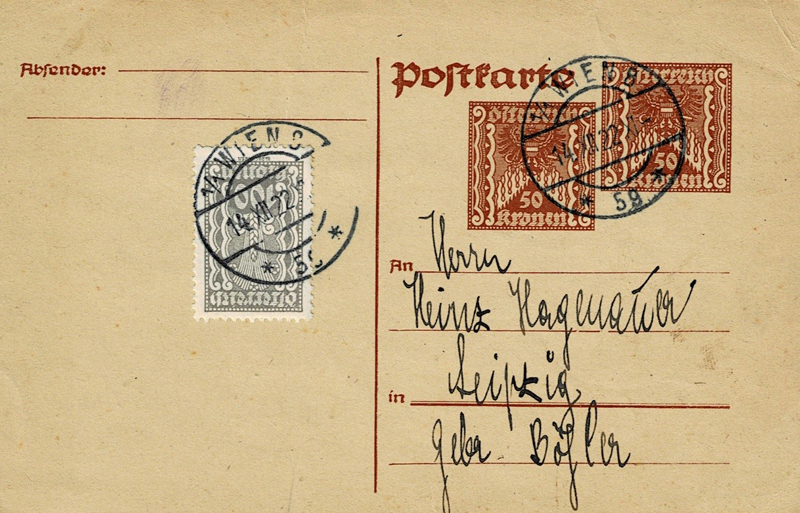 Absender:
Postkarte
Österreich
50
Kronen
Österreich
50
Kronen
WIEN
14.XII.22
59
1/1 WIEN
14.XII.22
Österreich
An
Herrn
Heinz Hagenauer
in
Leipzig
Gebr. Böhler